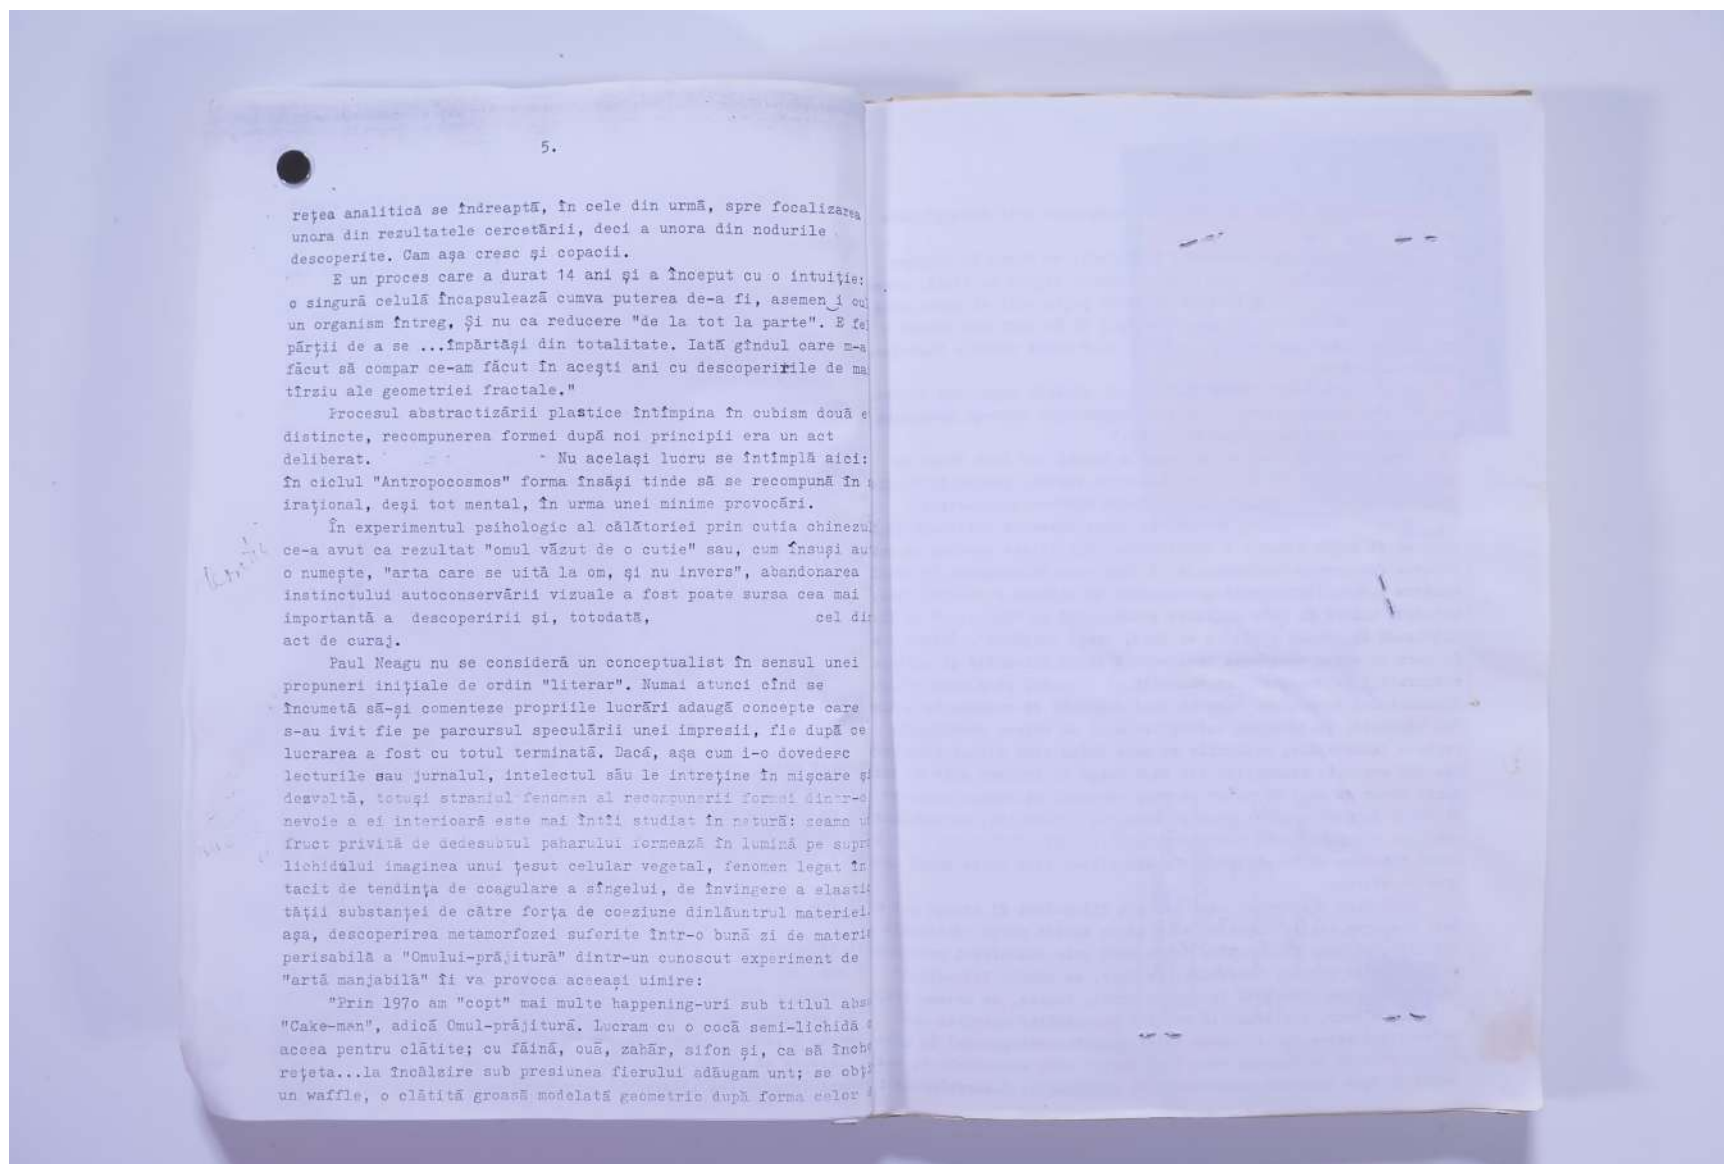 5.
rețea analitică se îndreaptă, în cele din urmă, spre focalizarea
unora din rezultatele cercetării, deci a unora din nodurile
descoperite. Cam așa cresc și copacii.
E un proces care a durat 14 ani și a început cu o intuiție:
o singură celulă încapsulează cumva puterea de-a fi, asemen i cu
un organism întreg, Și nu ca reducere "de la tot la parte". E
părții de a se ...împărtăși din totalitate. Iată gîndul care m-a
făcut să compar ce-am făcut în acești ani cu descoperirile de
tîrziu ale geometriei fractale."
Procesul abstractizării plastice întîmpina în cubism două
distincte, recompunerea formei după noi principii era un act
deliberat. - Nu același lucru se întîmplă aici:
în ciclul "Antropocosmos" forma însăși tinde să se recompună în
irațional, deși tot mental, în urma unei minime provocări.
În experimentul psihologic al călătoriei prin cutia
ce-a avut ca rezultat "omul văzut de o cutie" sau, cum însuși
o numește, "arta care se uită la om, și nu invers", abandonarea
instinctului autoconservării vizuale a fost poate sursa cea mai
importantă a descoperirii și, totodată, cel
act de curaj.
Paul Neagu nu se consideră un conceptualist în sensul unei
propuneri inițiale de ordin "literar". Numai atunci cînd se
încumetă să-și comenteze propriile lucrări adaugă concepte care
s-au ivit fie pe parcursul speculării unei impresii, fie după ce
lucrarea a fost cu totul terminată. Dacă, așa cum i-o dovedesc
lecturile sau jurnalul, intelectul său le întreține în mișcare
dezvoltă, totuși straniul fenomen al recompunerii formei dintr-o
nevoie a ei interioară este mai întîi studiat în natură: zeama
fruct privită de dedesubtul paharului formează în lumină pe
lichidului imaginea unui țesut celular vegetal, fenomen legat
tacit de tendința de coagulare a sîngelui, de învingere a
tății substanței de către forța de coeziune dinlăuntrul materiei.
așa, descoperirea metamorfozei suferite într-o bună zi de
perisabilă a "Omului-prăjitură" dintr-un cunoscut experiment de
"artă manjabilă" îi va provoca aceeași uimire:
"Prin 197o am "copt" mai multe happening-uri sub titlul
"Cake-man", adică Omul-prăjitură. Lucram cu o cocă semi-lichidă
aceea pentru clătite; cu făină, ouă, zahăr, sifon și, ca să
rețeta...la încălzire sub presiunea fierului adăugam unt; se
un waffle, o clătită groasă modelată geometric după forma celor